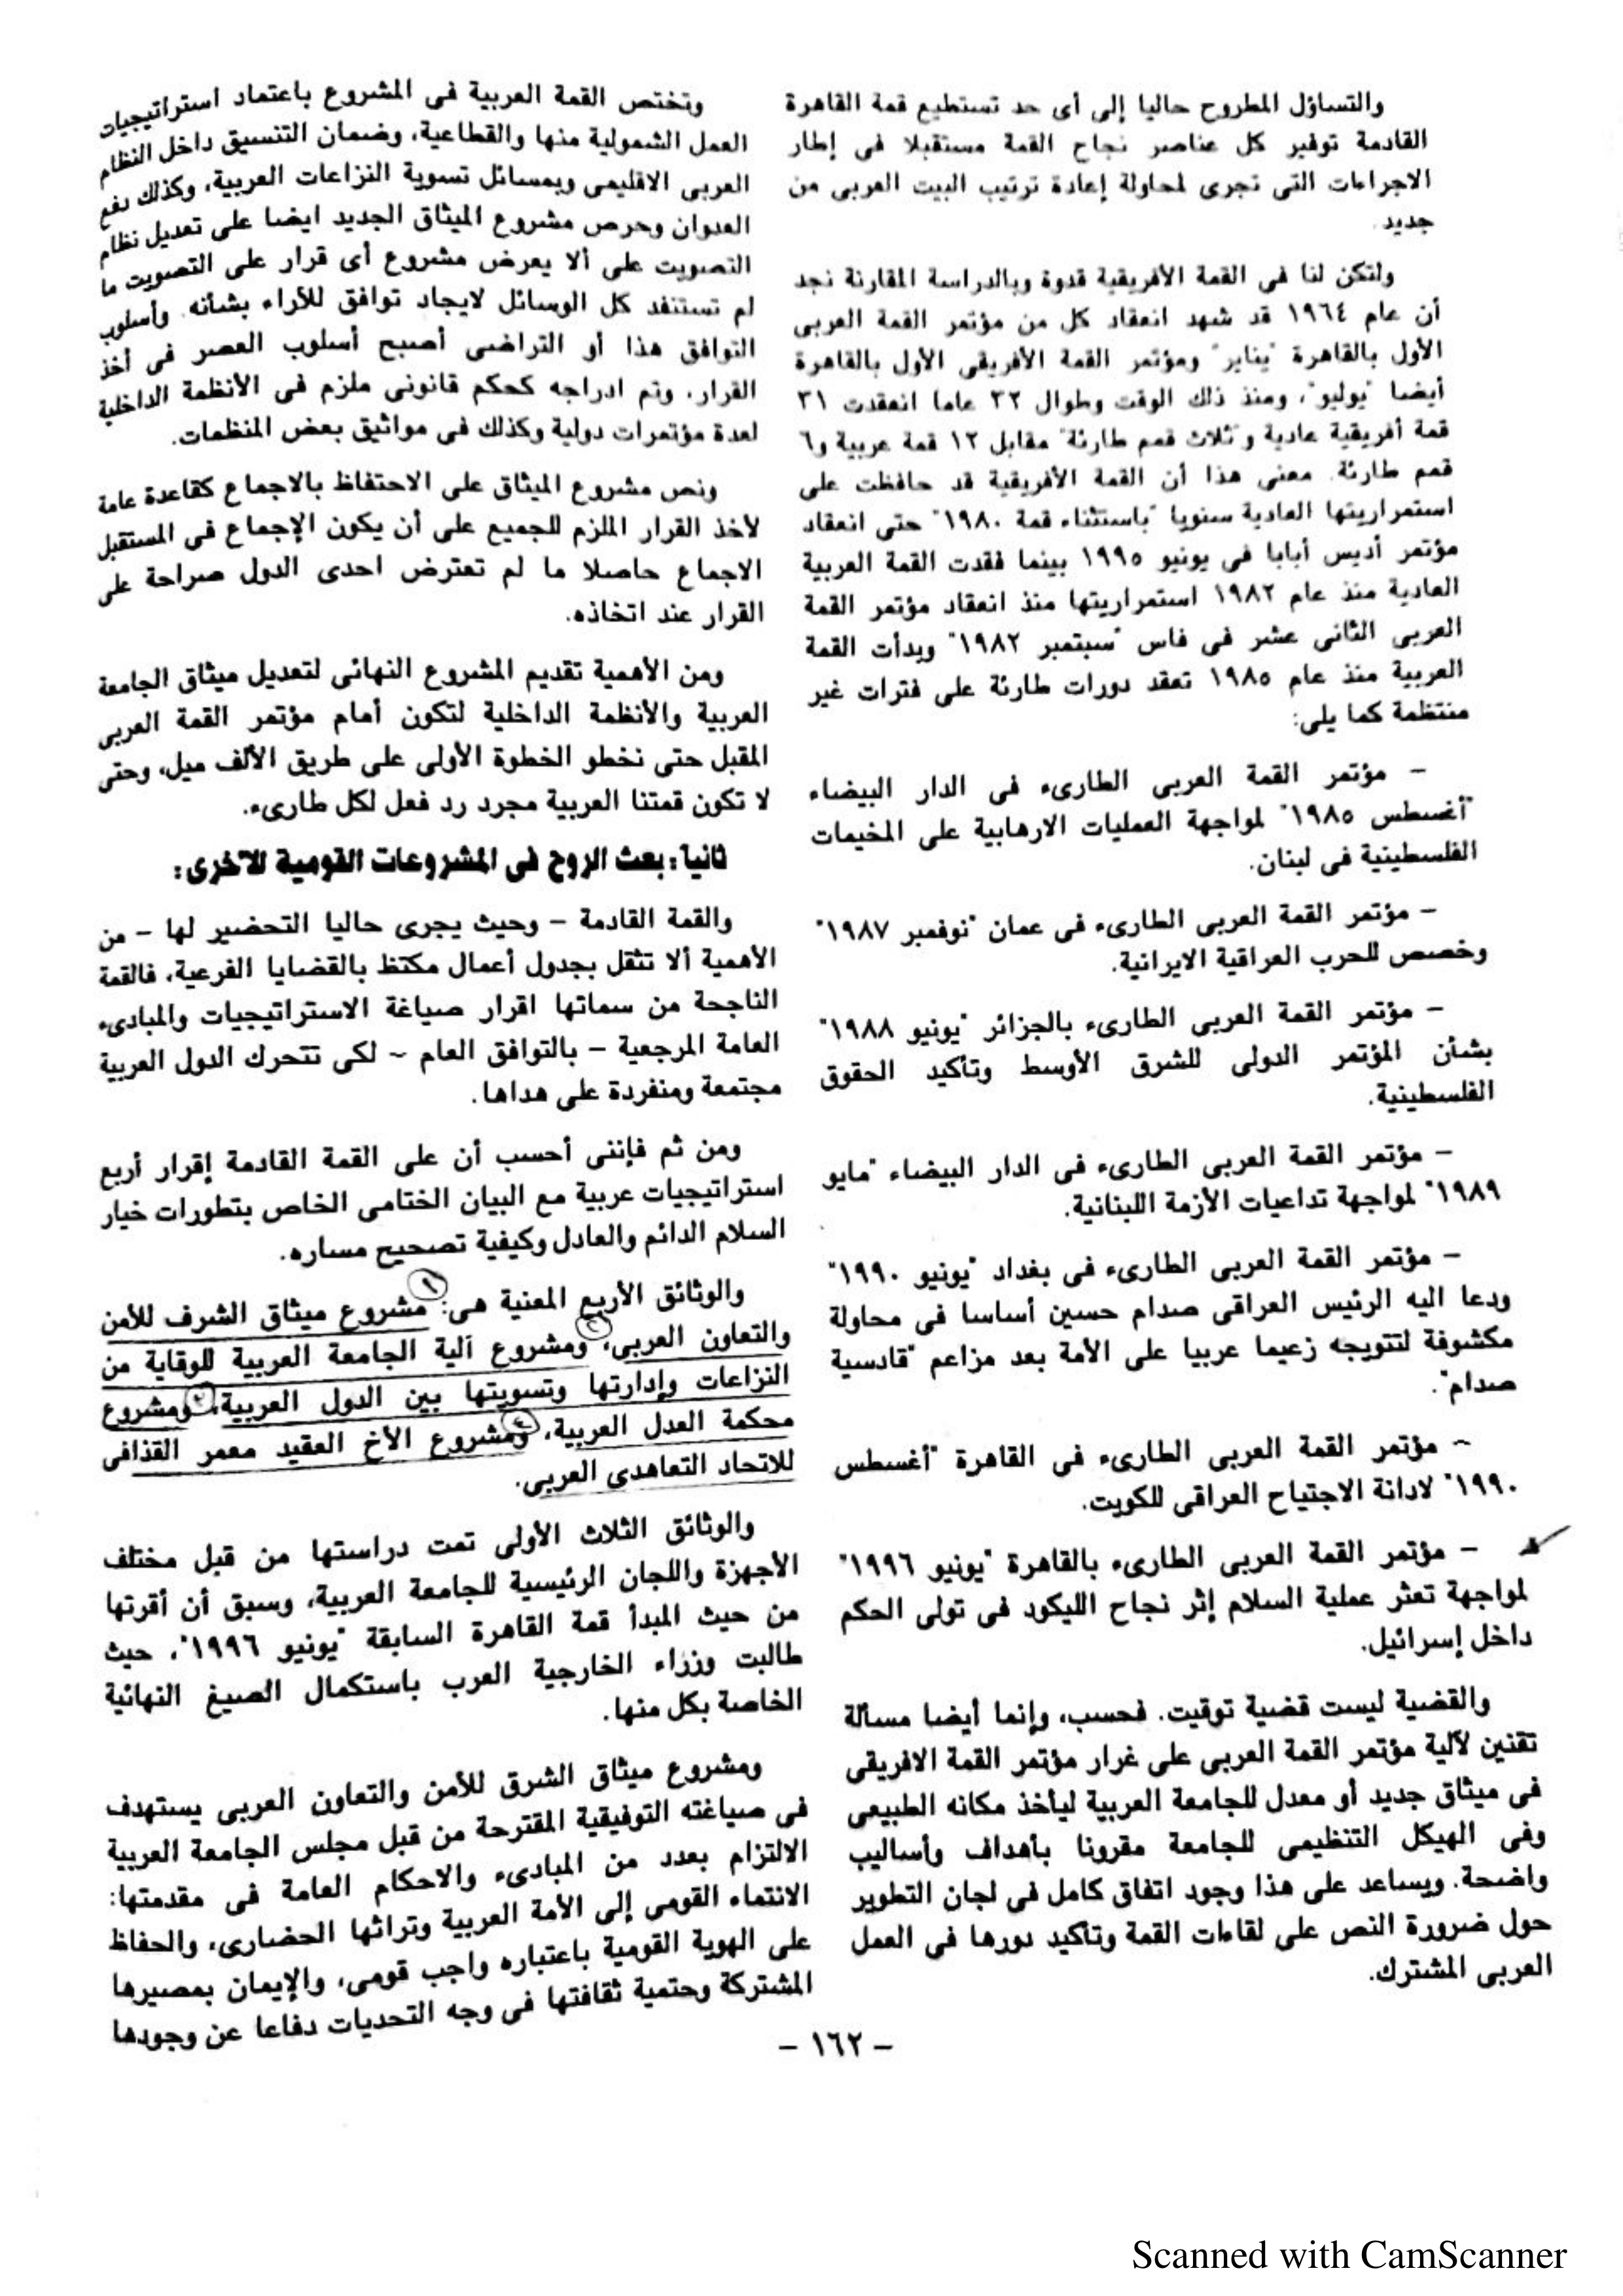 والتساؤل المطروح حاليا إلى أى حد تستطيع قمة القاهرة
القادمة توفير كل عناصر نجاح القمة مستقبلا فى إطار
الاجراءات التى تجرى لمحاولة إعادة ترتيب البيت العربى من
جديد.
ولتكن لنا فى القمة الأفريقية قدوة وبالدراسة المقارنة نجد
أن عام ١٩٦٤ قد شهد انعقاد كل من مؤتمر القمة العربى
الأول بالقاهرة "يناير" ومؤتمر القمة الأفريقى الأول بالقاهرة
أيضا "يوليو"، ومنذ ذلك الوقت وطوال ٣٢ عاما انعقدت ٣١
قمة أفريقية عادية و"ثلاث قمم طارئة" مقابل ١٢ قمة عربية و٦
قمم طارئة. معنى هذا أن القمة الأفريقية قد حافظت على
استمراريتها العادية سنويا "باستثناء قمة ١٩٨٠" حتى انعقاد
مؤتمر أديس أبابا فى يونيو ١٩٩٥ بينما فقدت القمة العربية
العادية منذ عام ١٩٨٢ استمراريتها منذ انعقاد مؤتمر القمة
العربى الثانى عشر فى فاس "سبتمبر ١٩٨٢" وبدأت القمة
العربية منذ عام ١٩٨٥ تعقد دورات طارئة على فترات غير
منتظمة كما يلى:
– مؤتمر القمة العربى الطارىء فى الدار البيضاء
"أغسطس ١٩٨٥" لمواجهة العمليات الارهابية على المخيمات
الفلسطينية فى لبنان.
– مؤتمر القمة العربى الطارىء فى عمان "نوفمبر ١٩٨٧"
وخصص للحرب العراقية الايرانية.
– مؤتمر القمة العربى الطارىء بالجزائر "يونيو ١٩٨٨"
بشأن المؤتمر الدولى للشرق الأوسط وتأكيد الحقوق
الفلسطينية.
– مؤتمر القمة العربى الطارىء فى الدار البيضاء "مايو
١٩٨٩" لمواجهة تداعيات الأزمة اللبنانية.
– مؤتمر القمة العربى الطارىء فى بغداد "يونيو ١٩٩٠"
ودعا اليه الرئيس العراقى صدام حسين أساسا فى محاولة
مكشوفة لتتويجه زعيما عربيا على الأمة بعد مزاعم "قادسية
صدام".
– مؤتمر القمة العربى الطارىء فى القاهرة "أغسطس
١٩٩٠" لادانة الاجتياح العراقى للكويت.
– مؤتمر القمة العربى الطارىء بالقاهرة "يونيو ١٩٩٦"
لمواجهة تعثر عملية السلام إثر نجاح الليكود فى تولى الحكم
داخل إسرائيل.
والقضية ليست قضية توقيت. فحسب، وإنما أيضا مسألة
تقنين لآلية مؤتمر القمة العربى على غرار مؤتمر القمة الافريقى
فى ميثاق جديد أو معدل للجامعة العربية ليأخذ مكانه الطبيعى
وفى الهيكل التنظيمى للجامعة مقرونا بأهداف وأساليب
واضحة. ويساعد على هذا وجود اتفاق كامل فى لجان التطوير
حول ضرورة النص على لقاءات القمة وتأكيد دورها فى العمل
العربى المشترك.
وتختص القمة العربية فى المشروع باعتماد استراتيجيات
العمل الشمولية منها والقطاعية، وضمان التنسيق داخل النظام
العربى الاقليمى وبمسائل تسوية النزاعات العربية، وكذلك دفع
العدوان وحرص مشروع الميثاق الجديد ايضا على تعديل نظام
التصويت على ألا يعرض مشروع أى قرار على التصويت ما
لم تستنفد كل الوسائل لايجاد توافق للآراء بشأنه. وأسلوب
التوافق هذا أو التراضى أصبح أسلوب العصر فى أخذ
القرار. وتم ادراجه كحكم قانونى ملزم فى الأنظمة الداخلية
لعدة مؤتمرات دولية وكذلك فى مواثيق بعض المنظمات.
ونص مشروع الميثاق على الاحتفاظ بالاجماع كقاعدة عامة
لأخذ القرار الملزم للجميع على أن يكون الإجماع فى المستقبل
الاجماع حاصلا ما لم تعترض احدى الدول صراحة على
القرار عند اتخاذه.
ومن الأهمية تقديم المشروع النهائى لتعديل ميثاق الجامعة
العربية والأنظمة الداخلية لتكون أمام مؤتمر القمة العربى
المقبل حتى نخطو الخطوة الأولى على طريق الألف ميل، وحتى
لا تكون قمتنا العربية مجرد رد فعل لكل طارىء.
ثانيا: بعث الروح فى المشروعات القومية للأخرى:
والقمة القادمة – وحيث يجرى حاليا التحضير لها – من
الأهمية ألا تثقل بجدول أعمال مكتظ بالقضايا الفرعية، فالقمة
الناجحة من سماتها اقرار صياغة الاستراتيجيات والمبادىء
العامة المرجعية – بالتوافق العام – لكى تتحرك الدول العربية
مجتمعة ومنفردة على هداها.
ومن ثم فإننى أحسب أن على القمة القادمة إقرار أربع
استراتيجيات عربية مع البيان الختامى الخاص بتطورات خيار
السلام الدائم والعادل وكيفية تصحيح مساره.
والوثائق الأربع المعنية هى: ١ مشروع ميثاق الشرف للأمن
والتعاون العربى، ٢ ومشروع آلية الجامعة العربية للوقاية من
النزاعات وإدارتها وتسويتها بين الدول العربية، ٣ ومشروع
محكمة العدل العربية، ٤ ومشروع الأخ العقيد معمر القذافى
للاتحاد التعاهدى العربى.
والوثائق الثلاث الأولى تمت دراستها من قبل مختلف
الأجهزة واللجان الرئيسية للجامعة العربية، وسبق أن أقرتها
من حيث المبدأ قمة القاهرة السابقة "يونيو ١٩٩٦"، حيث
طالبت وزراء الخارجية العرب باستكمال الصيغ النهائية
الخاصة بكل منها.
ومشروع ميثاق الشرق للأمن والتعاون العربى يستهدف
فى صياغته التوفيقية المقترحة من قبل مجلس الجامعة العربية
الالتزام بعدد من المبادىء والاحكام العامة فى مقدمتها:
الانتماء القومى إلى الأمة العربية وتراثها الحضارى، والحفاظ
على الهوية القومية باعتباره واجب قومى، والإيمان بمصيرها
المشتركة وحتمية ثقافتها فى وجه التحديات دفاعا عن وجودها
– ١٦٢ –
Scanned with CamScanner